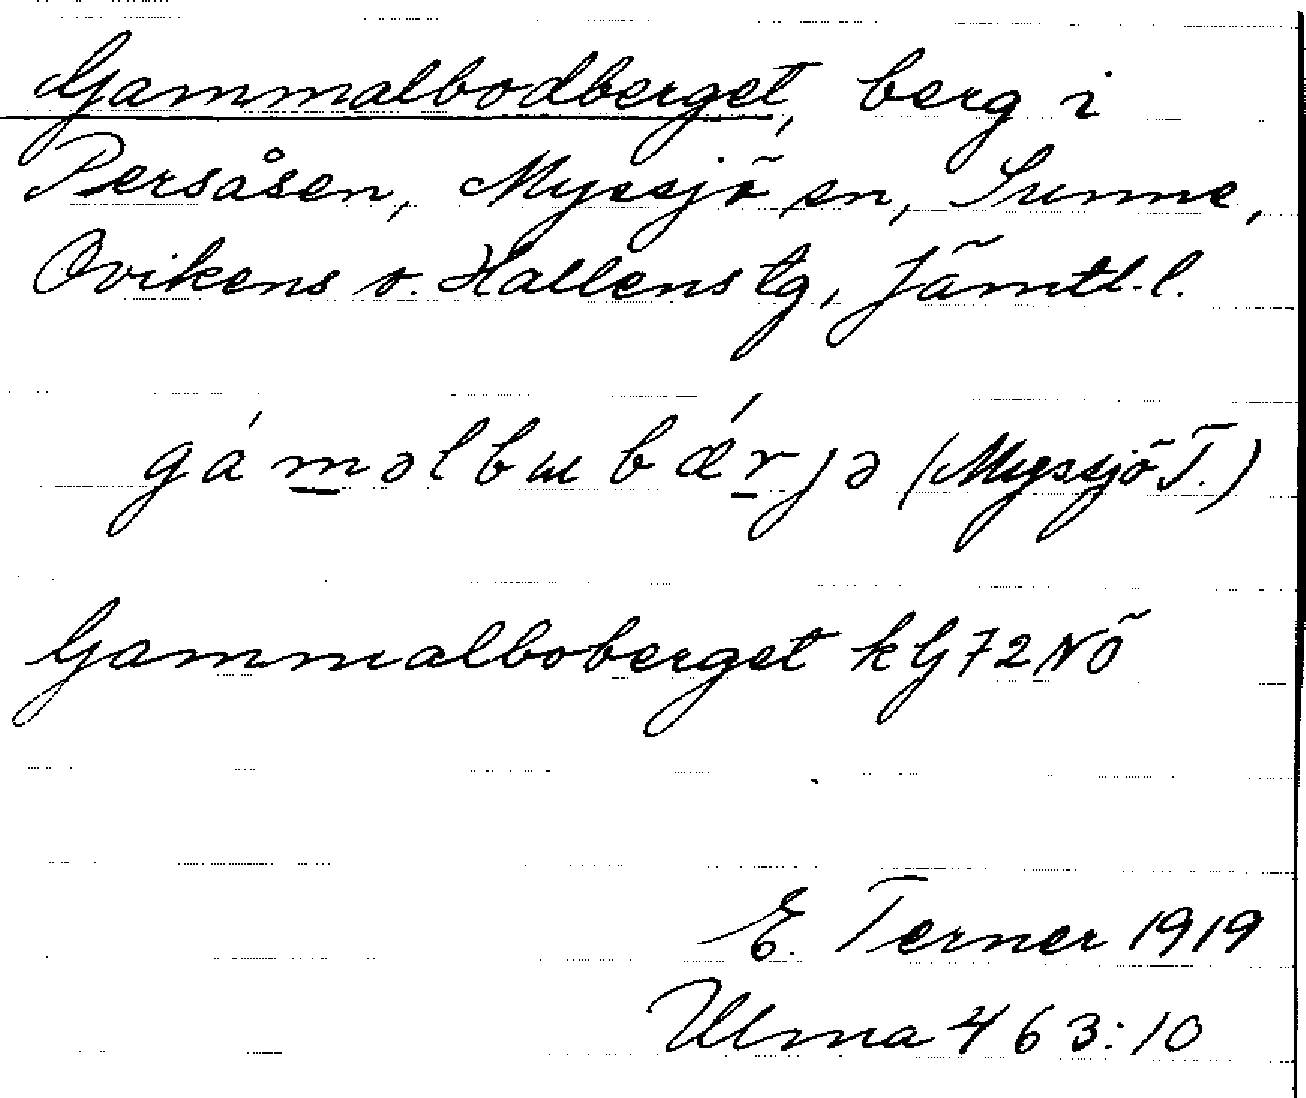 Gammalbodberget, berg i
Persåsen, Myssjö sn, Sunne,
Ovikens o. Hallens tg, Jämtl. l.
gáməlbɯbǽrjə (Myssjö T.)
Gammalboberget kG72NÖ
E. Terner 1919
Ulma 463:10